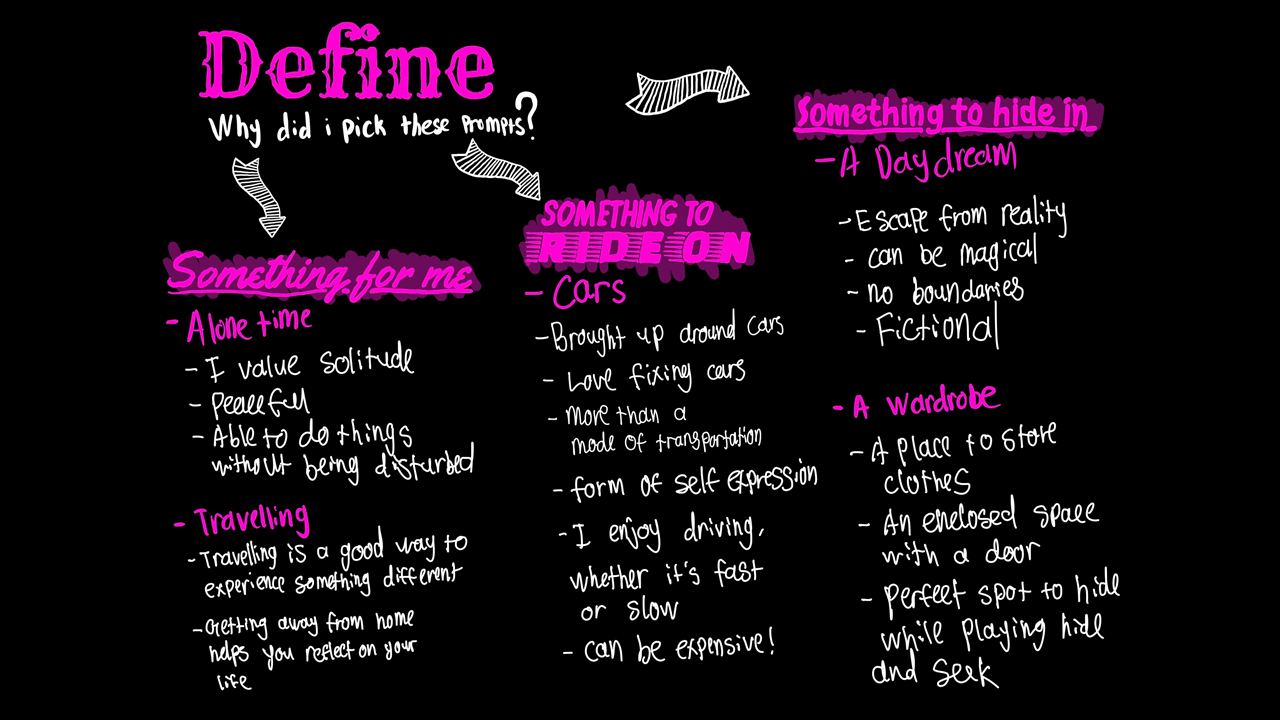 Define
Why did i pick these prompts?
Something for me
- Alone time
- I value solitude
- Peacefull
- Able to do things
without being disturbed
- Travelling
- Travelling is a good way to
experience something different
- Getting away from home
helps you reflect on your
life
SOMETHING TO
RIDE ON
- Cars
- Brought up around cars
- Love fixing cars
- More than a
mode of transportation
- form of self expression
- I enjoy driving,
whether it's fast
or slow
- can be expensive!
Something to hide in
- A Daydream
- Escape from reality
- can be magical
- no boundaries
- Fictional
- A wardrobe
- A place to store
clothes
- An enclosed space
with a door
- perfect spot to hide
while playing hide
and seek